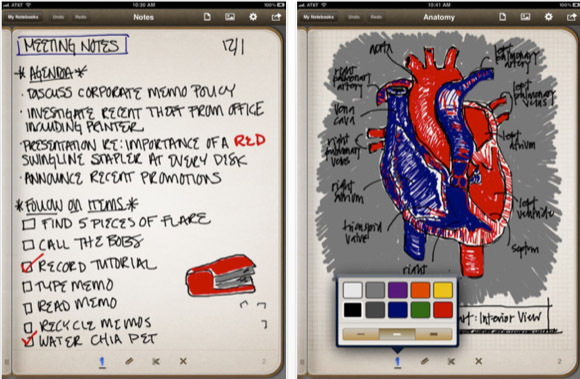 AT&T
10:30 AM
My Notebooks
Undo
Redo
Notes
MEETING NOTES
12/1
* AGENDA *
· DISCUSS CORPORATE MEMO POLICY
· INVESTIGATE RECENT THEFT FROM OFFICE
INCLUDING PRINTER
· PRESENTATION RE: IMPORTANCE OF A RED
SWINGLINE STAPLER AT EVERY DISK
· ANNOUNCE RECENT PROMOTIONS
* FOLLOW ON ITEMS *
FIND 5 PIECES OF FLARE
CALL THE BOBS
RECORD TUTORIAL
TYPE MEMO
READ MEMO
RECYCLE MEMOS
WATER CHIA PET
2
AT&T
10:41 AM
My Notebooks
Undo
Redo
Anatomy
aorta
left
pulmonary
artery
right
pulmonary
artery
left
pulmonary
veins
vena
cava
right
pulmonary
veins
left
atrium
right
atrium
left
ventricle
septum
right
: Interior View
2